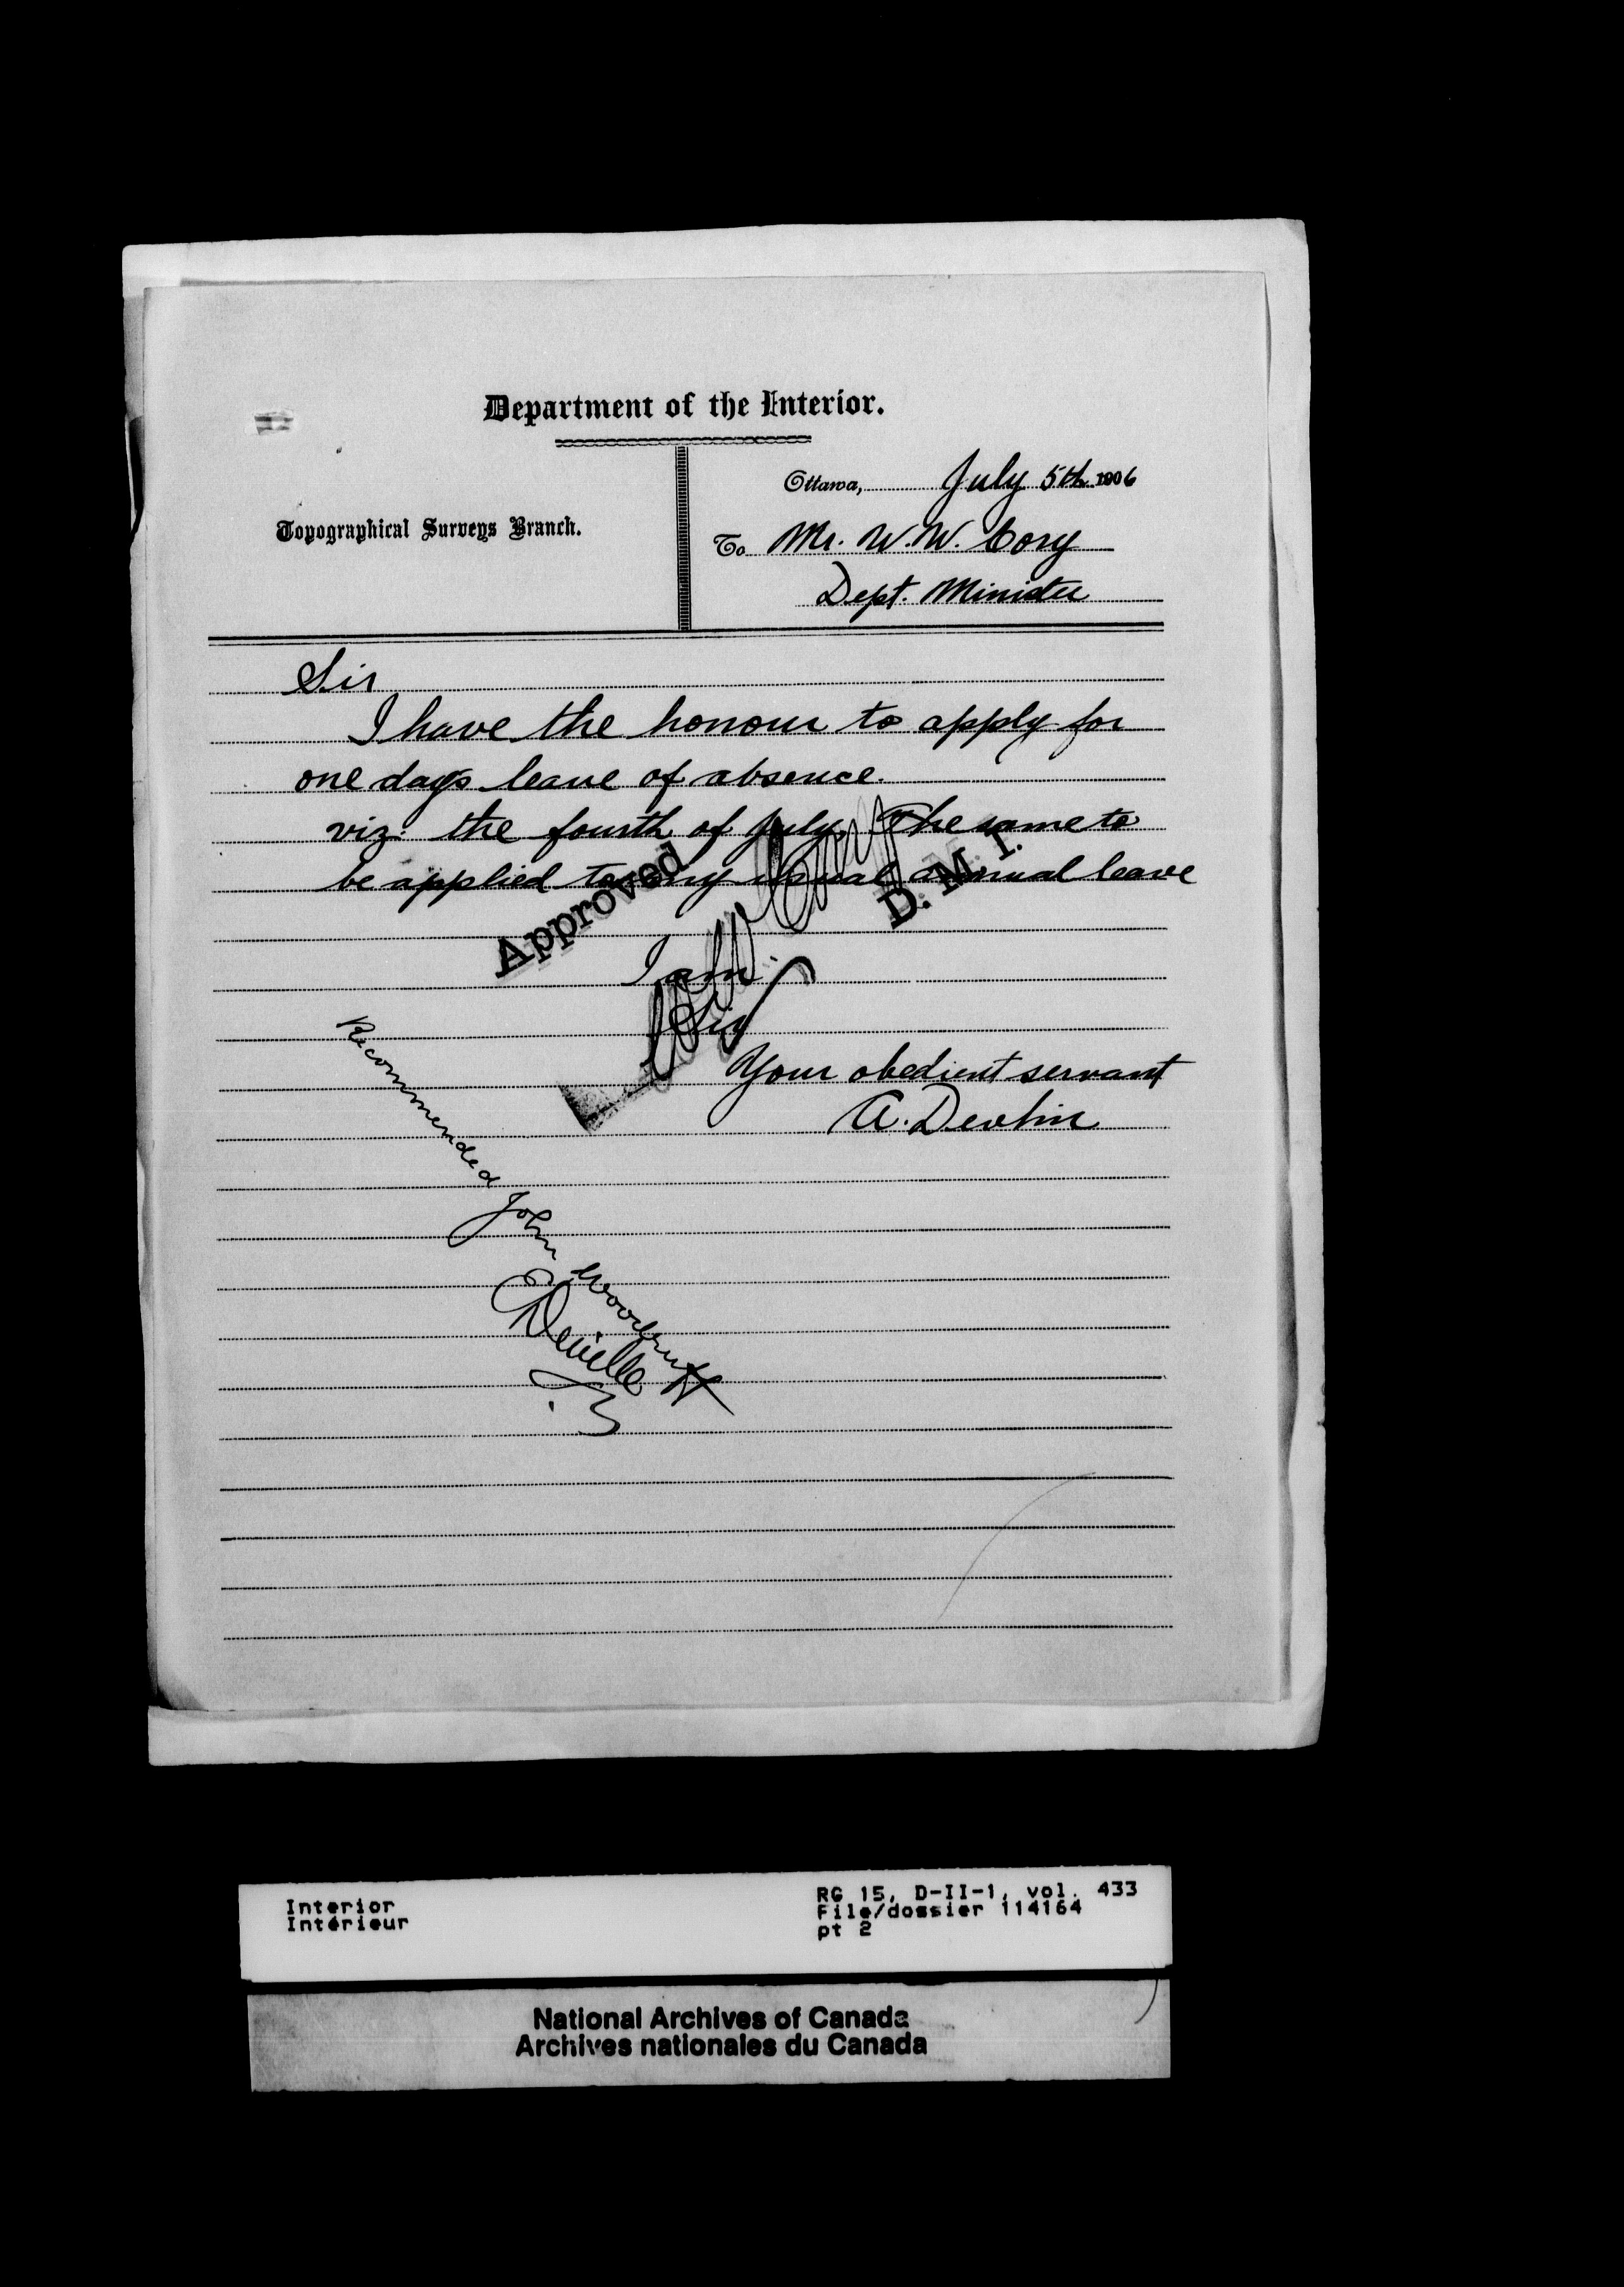 Department of the Interior.
Topographical Surveys Branch.
Ottawa, July 5th 1906
To Mr. W. W. Cory
Dept. Minister
Sir
I have the honour to apply for
one days leave of absence.
viz: the fourth of July. The same to
be applied to my usual annual leave
Approved
W W Cory
D. M. I.
I am
Sir
Your obedient servant
A. Devlin
Recommended
John Woodruff
E Deville
S. G
Interior
Intérieur
RG 15, D-II-1, vol. 433
File/dossier 114164
pt 2
National Archives of Canada
Archives nationales du Canada